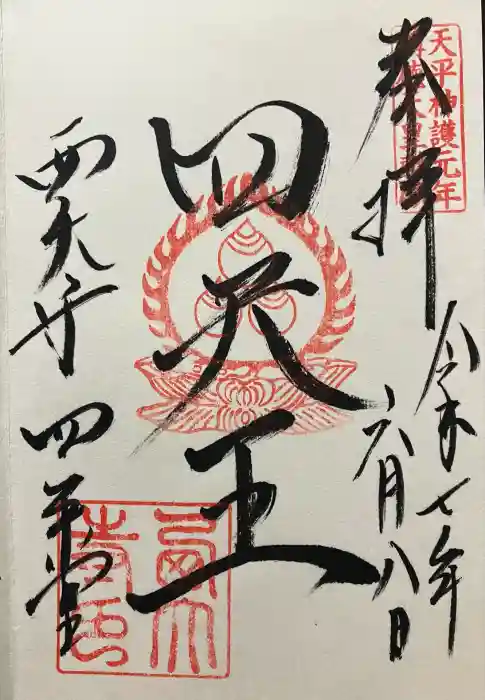 奉拝
天平神護元年
令和七年
六月八日
四天王
西大寺 四王堂